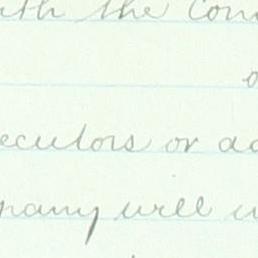 with the con
o
ecutors or ad
pany will u